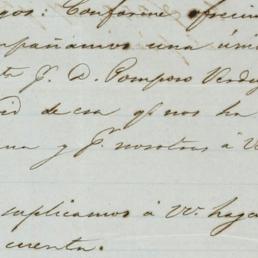 gos: Conforme
pañamos una úni
ta J. D. Pomposo Verdu
id de esa q. nos ha
na y J. nosotros á V
suplicamos á VV. haga
cuenta.